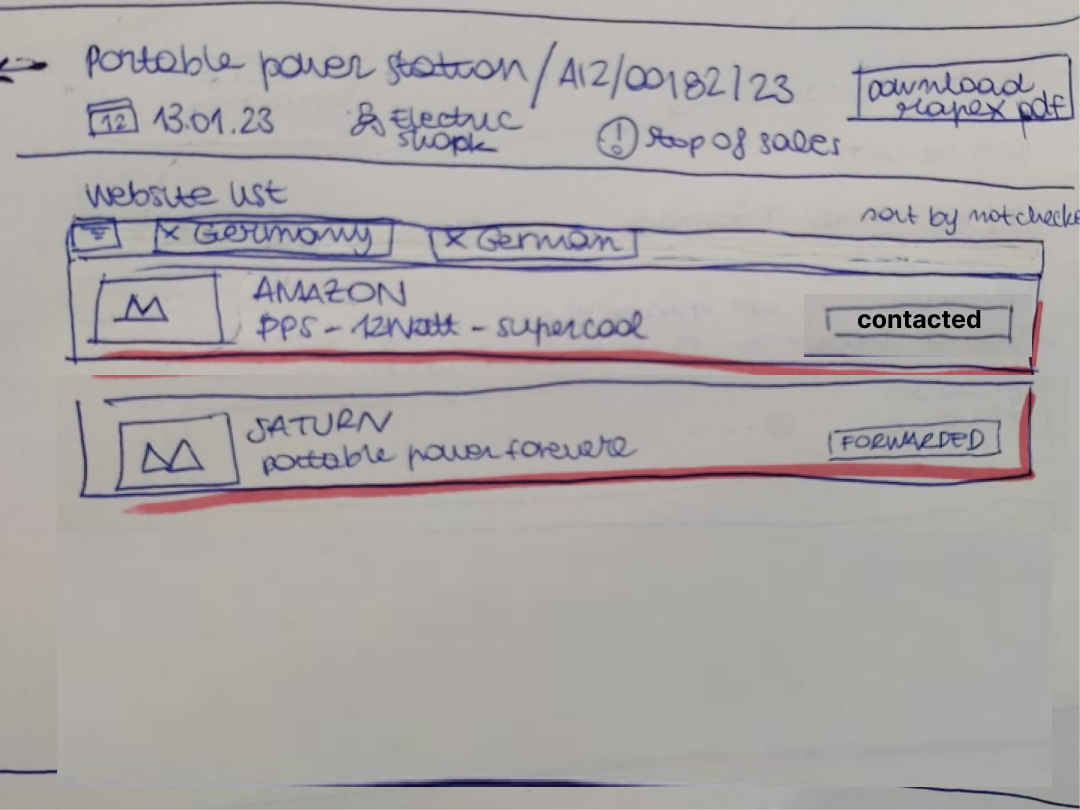 Portable power station / A12/00182/23
Download rapex pdf
12 13.01.23
Electric shopk
! Stop of sales
Website list
sort by not checke
x Germany x German
AMAZON
PPS - 12Watt - supercool
contacted
SATURN
portable power forevere
FORWARDED